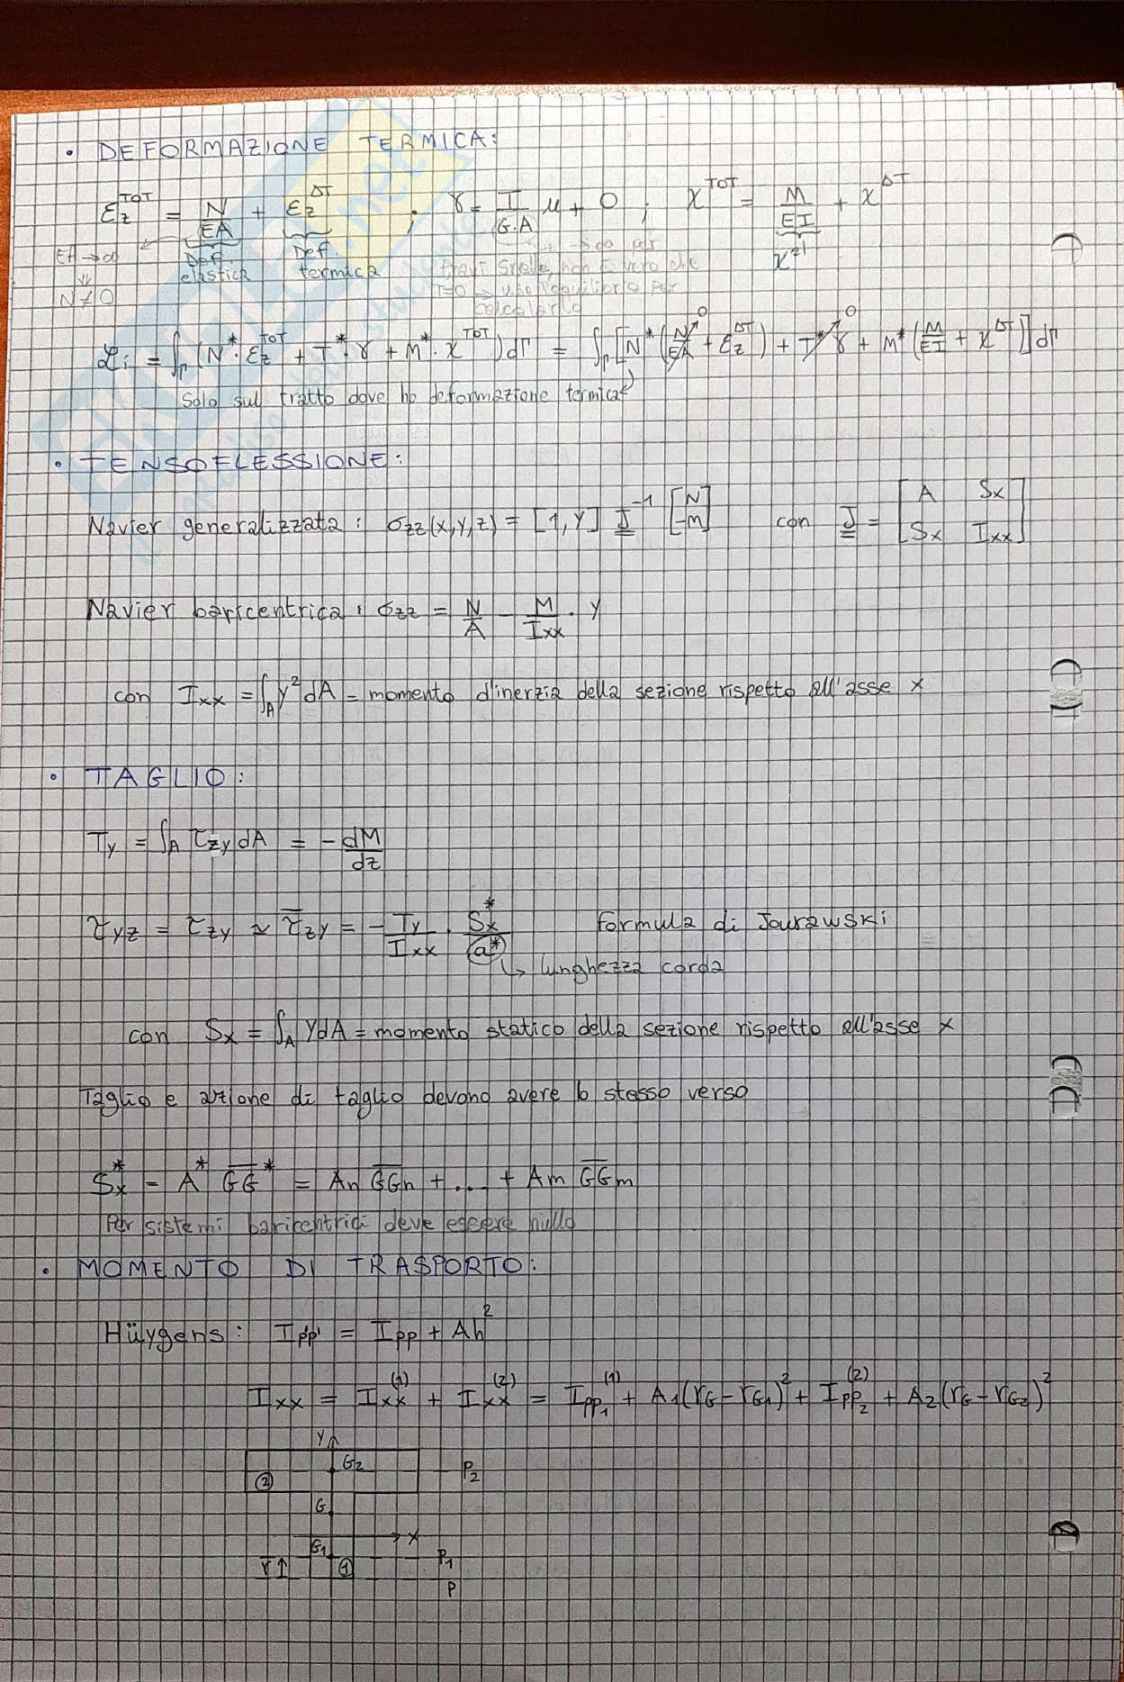 • DEFORMAZIONE TERMICA:
ε_z^TOT = N/EA + ε_z^ΔT ; γ = T/(G·A) μ + 0 ; χ^TOT = M/EI + χ^ΔT
EA→∞ Def. elastica Def termica χ^el
⇓
N≠0
𝓛i = ∫_Γ (N*·ε_z^TOT + T*·γ + M*·χ^TOT) dΓ = ∫_Γ [N*(N/EA + ε_z^ΔT) + T*γ + M*(M/EI + χ^ΔT)] dΓ
0 0
Solo sul tratto dove ho deformazione termica
• TENSOFLESSIONE:
Navier generalizzata: σzz(x,y,z) = [1,Y] J^-1 [N -M] con J = [A Sx Sx Ixx]
Navier baricentrica: σzz = N/A - M/Ixx · y
con Ixx = ∫_A y² dA = momento d'inerzia della sezione rispetto all'asse x
• TAGLIO:
Ty = ∫_A τzy dA = - dM/dz
τyz = τzy ≃ τ̅zy = - Ty/Ixx · Sx*/a* Formula di Jourawski
↳ lunghezza corda
con Sx = ∫_A Y dA = momento statico della sezione rispetto all'asse x
Taglio e azione di taglio devono avere lo stesso verso
Sx* = A* GG* = An GGn + ... + Am GGm
Per sistemi baricentrici deve essere nullo
• MOMENTO DI TRASPORTO:
Hüygens: Ipp' = Ipp + Ah²
Ixx = Ixx^(1) + Ixx^(2) = Ipp₁^(1) + A₁(rG - rG₁)² + Ipp₂^(2) + A₂(rG - rG₂)²
Y
G₂ P₂
②
G
x
G₁ P₁
r ①
P